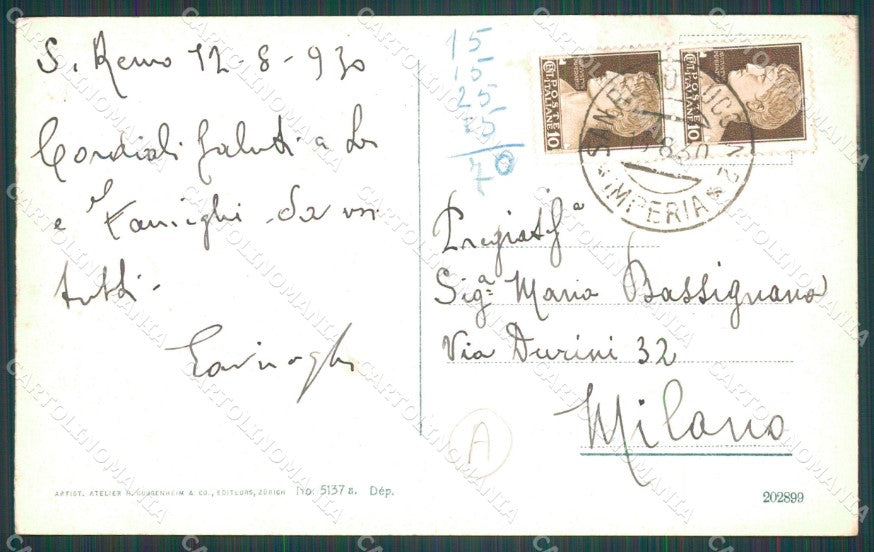 S. Remo 12-8-930
Cordiali Saluti a Lei
e
da noi
tutti -
15
15
25
15
70
POSTE ITALIANE
CENT. 10
POSTE ITALIANE
CENT. 10
IMPERIA
Pregiat.ª
Sigª Maria Bassignana
Via Durini 32
Milano
A
ARTIST. ATELIER H. GUGGENHEIM & CO., EDITEURS, ZÜRICH No. 5137 s. Dép.
202899
CARTOLINOMANIA